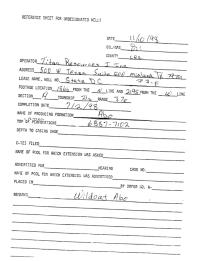 REFERENCE SHEET FOR UNDESIGNATED WELLS
DATE 11/60/93
OIL/GAS Oil
COUNTY Lea
OPERATOR Titan Resources I Inc
ADDRESS 500 W Texas Suite 500 Midland TX 79701
LEASE NAME, WELL NO. State DC
FOOTAGE LOCATION FROM THE N LINE AND FROM THE W LINE
SECTION TOWNSHIP 21s RANGE 37e
COMPLETION DATE 7/2/93
NAME OF PRODUCING FORMATION Abo
TOP OF PERFORATIONS 6887-7102
DEPTH TO CASING SHOE
C-123 FILED
NAME OF POOL FOR WHICH EXTENSION WAS ASKED
ADVERTISED FOR HEARING CASE NO.
NAME OF POOL FOR WHICH EXTENSION WAS ADVERTISED
PLACED IN BY ORDER NO. R-
REMARKS Wildcat Abo